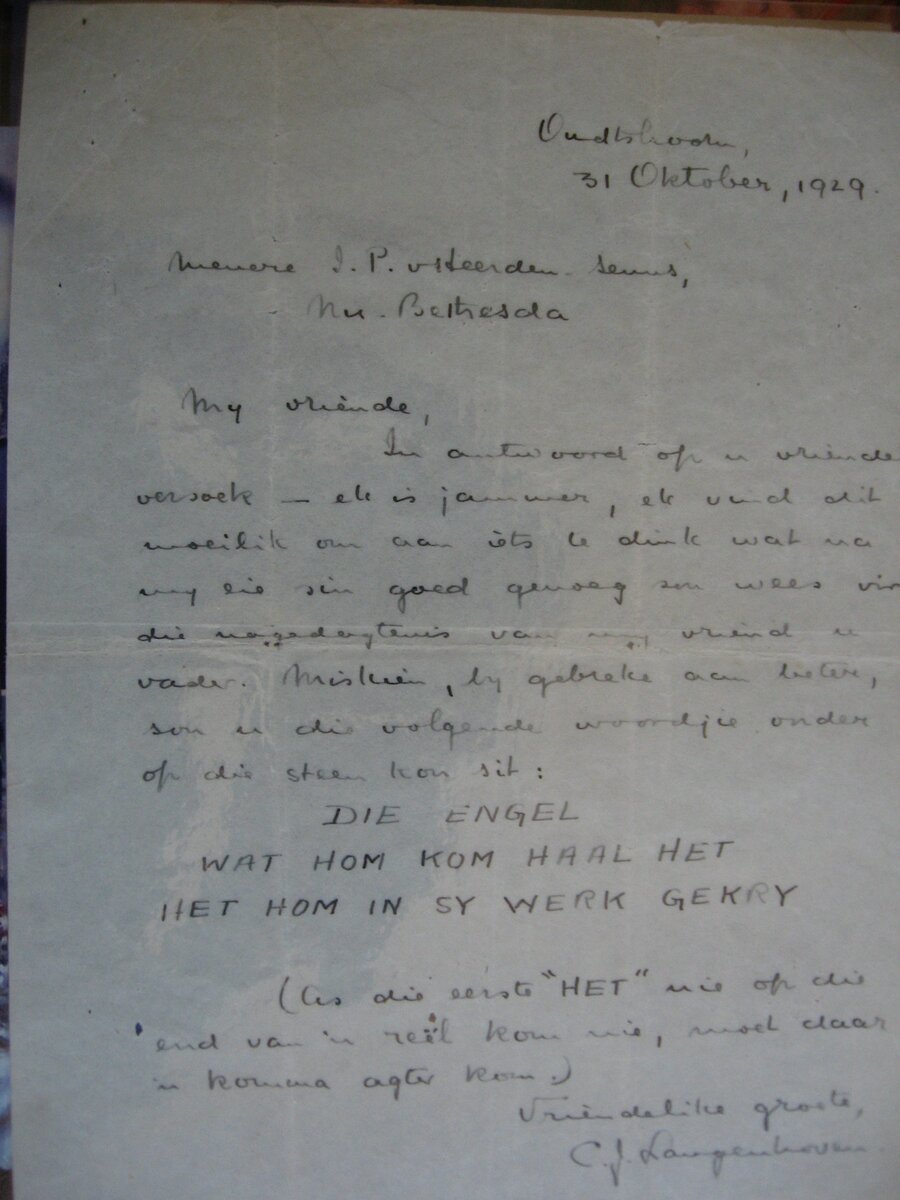 Oudtshoorn,
31 Oktober, 1929.
Menere I. P. vHeerden Seuns,
Nu-Bethesda
My vriende,
In antwoord op u vriende
versoek — ek is jammer, ek vind dit
moeilik om aan iets te dink wat na
my eie sin goed genoeg sou wees vir
die nagedagtenis van my vriend u
vader. Miskien, by gebreke aan beter,
sou u die volgende woordjie onder
op die steen kon sit:
DIE ENGEL
WAT HOM KOM HAAL HET
HET HOM IN SY WERK GEKRY
(As die eerste "HET" nie op die
end van 'n reël kom nie, moet daar
'n komma agter kom.)
Vriendelike groete,
C. J. Langenhoven.